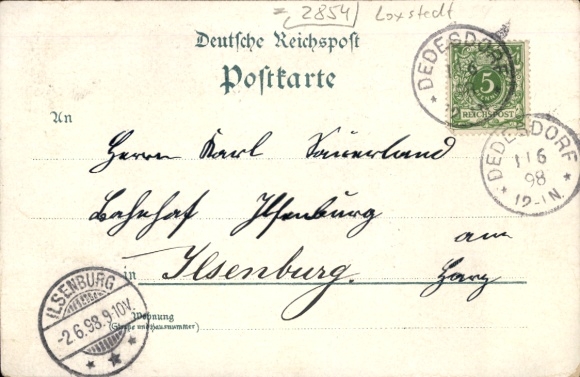 =(2854) Loxstedt
Deutsche Reichspost
Postkarte
DEDESDORF
5
REICHSPOST
An
DEDESDORF
1 6
98
12-1N
Herrn Karl Sauerland
Bahnhof Ilsenburg
am
in Ilsenburg. Harz
ILSENBURG
-2.6.98.9-10V.
Wohnung
(Straße und Hausnummer)